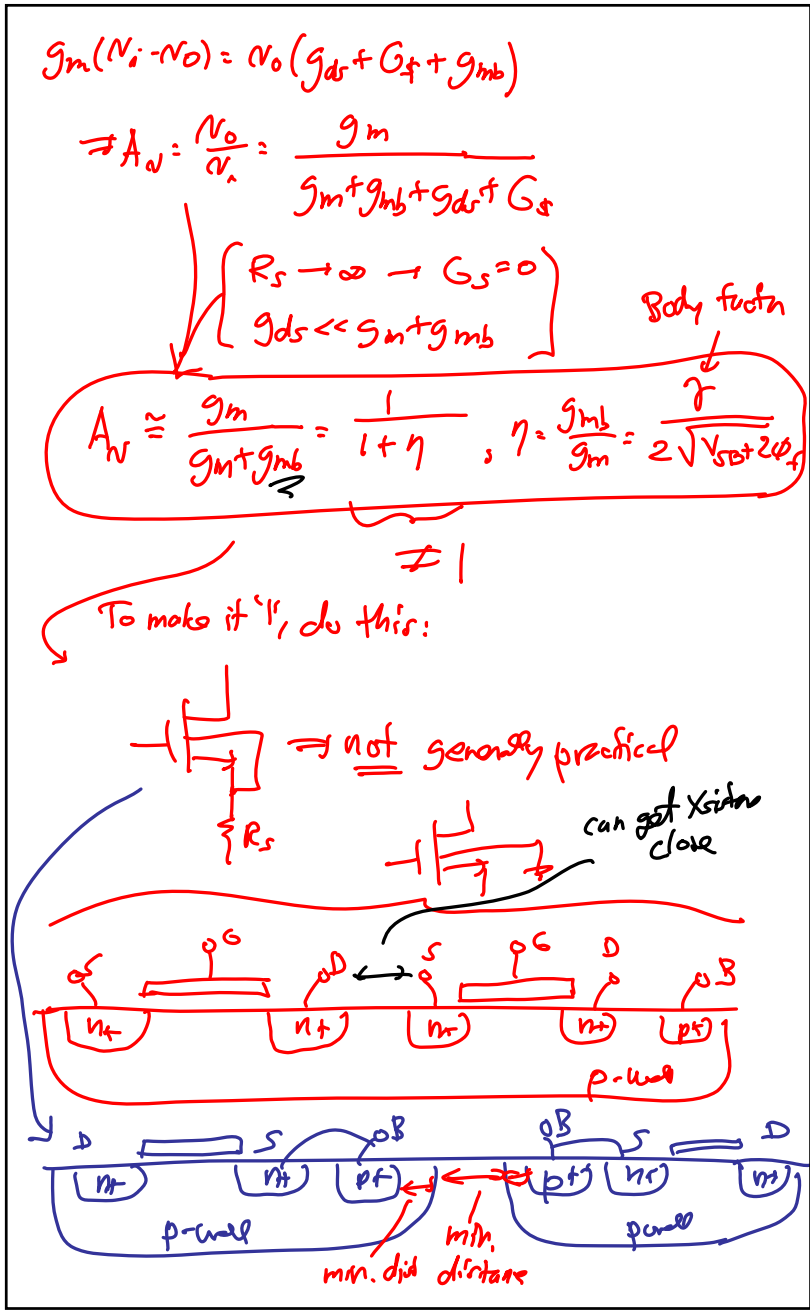 gm(vi-vo) = vo(gds+Gs+gmb)
⇒ Av = vo/vi = gm/(gm+gmb+gds+Gs)
Rs → ∞ → Gs=0
gds << gm+gmb
Body factor
Av ≅ gm/(gm+gmb) = 1/(1+η) , η = gmb/gm = γ/(2√(VSB+2φf))
≠ 1
To make it "1", do this:
⇒ not generally practical
Rs
can get Xsistors
close
S G D S G D B
n+ n+ n+ n+ p+
p-well
D S B B S D
n+ n+ p+ p+ n+ n+
p-well p-well
min. dist min. distance